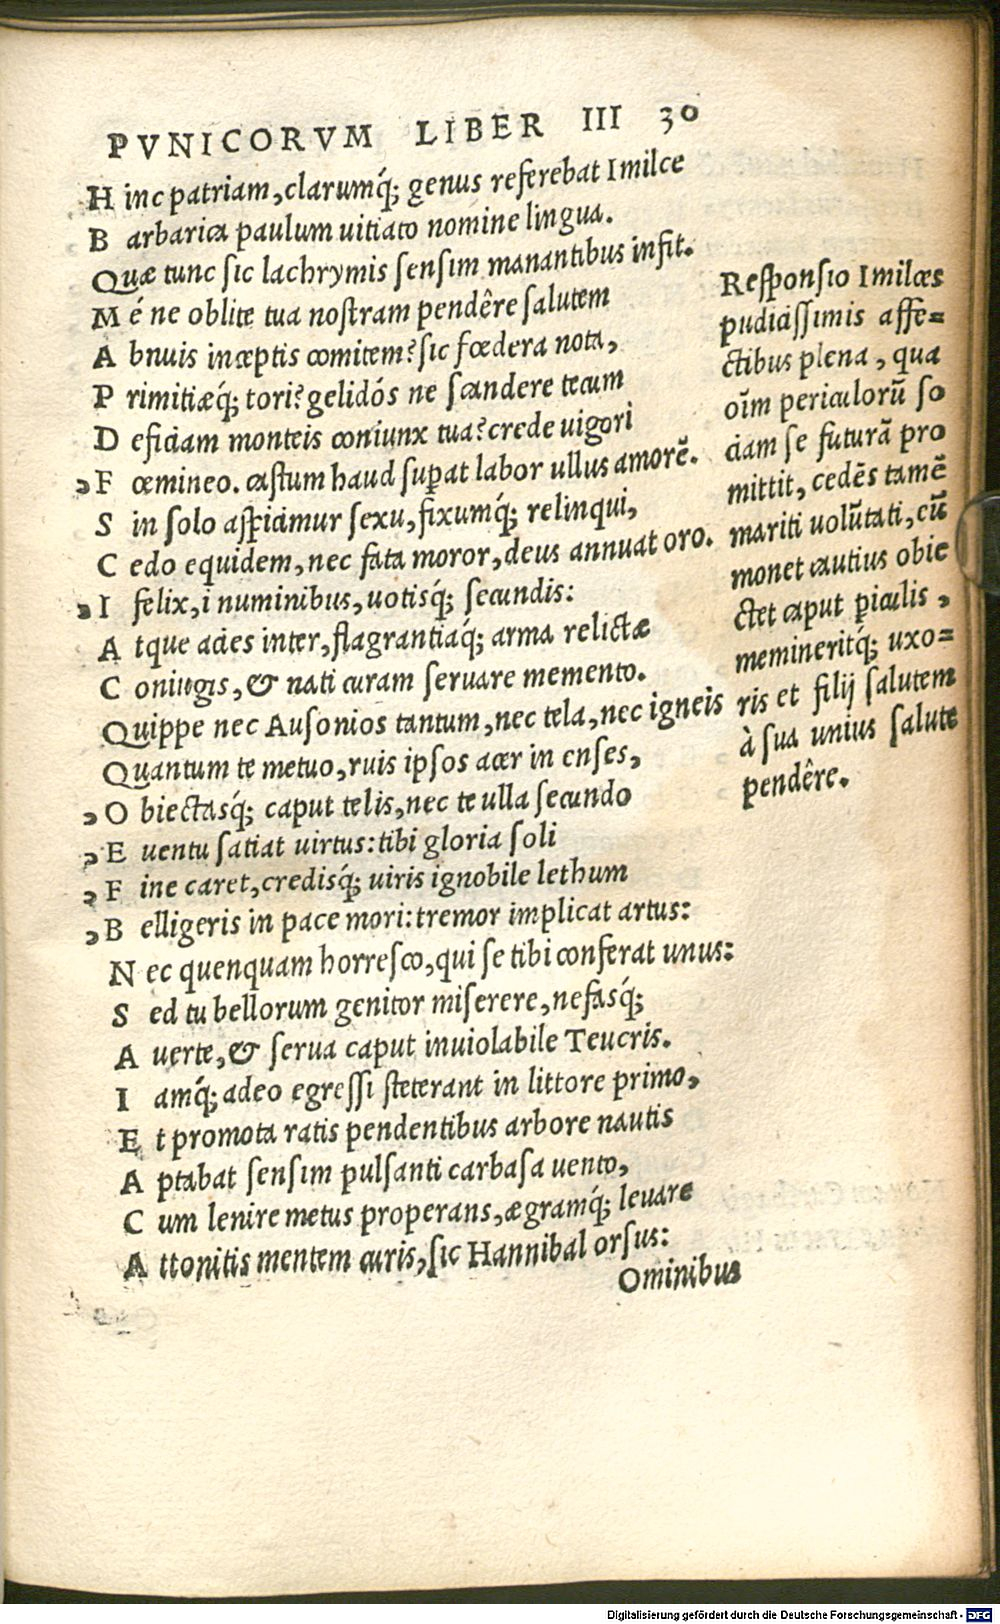 PVNICORVM LIBER III 30
H inc patriam, clarumq́; genus referebat Imilce
B arbarica paulum uitiato nomine lingua.
Quæ tunc sic lachrymis sensim manantibus infit.
M é ne oblite tua nostram pendêre salutem
A bnuis inceptis comitem? sic fœdera nota,
P rimitiæq́; tori? gelidós ne scandere tecum
D eficiam monteis coniunx tua? crede uigori
„F œmineo. castum haud suꝑat labor ullus amorẽ.
S in solo aspicimur sexu, fixumq́; relinqui,
C edo equidem, nec fata moror, deus annuat oro.
„I felix, i numinibus, uotisq́; secundis:
A tque acies inter, flagrantiaq́; arma relictæ
C oniugis, & nati curam seruare memento.
Quippe nec Ausonios tantum, nec tela, nec igneis
Quantum te metuo, ruis ipsos acer in enses,
„O biectasq́; caput telis, nec te ulla secundo
„E uentu satiat uirtus: tibi gloria soli
„F ine caret, credisq́; uiris ignobile lethum
„B elligeris in pace mori: tremor implicat artus:
N ec quenquam horresco, qui se tibi conferat unus:
S ed tu bellorum genitor miserere, nefasq́;
A uerte, & serua caput inuiolabile Teucris.
I amq́; adeo egressi steterant in littore primo,
E t promota ratis pendentibus arbore nautis
A ptabat sensim pulsanti carbasa uento,
C um lenire metus properans, ægramq́; leuare
A ttonitis mentem curis, sic Hannibal orsus:
Ominibus
Responsio Imilces
pudicissimis affe=
ctibus plena, qua
oĩm periculorũ so
ciam se futurã pro
mittit, cedẽs tamẽ
mariti uolũtati, cũ
monet cautius obie
ctet caput ꝑiculis,
memineritq́; uxo=
ris et filij salutem
à sua unius salute
pendêre.
Digitalisierung gefördert durch die Deutsche Forschungsgemeinschaft - DFG